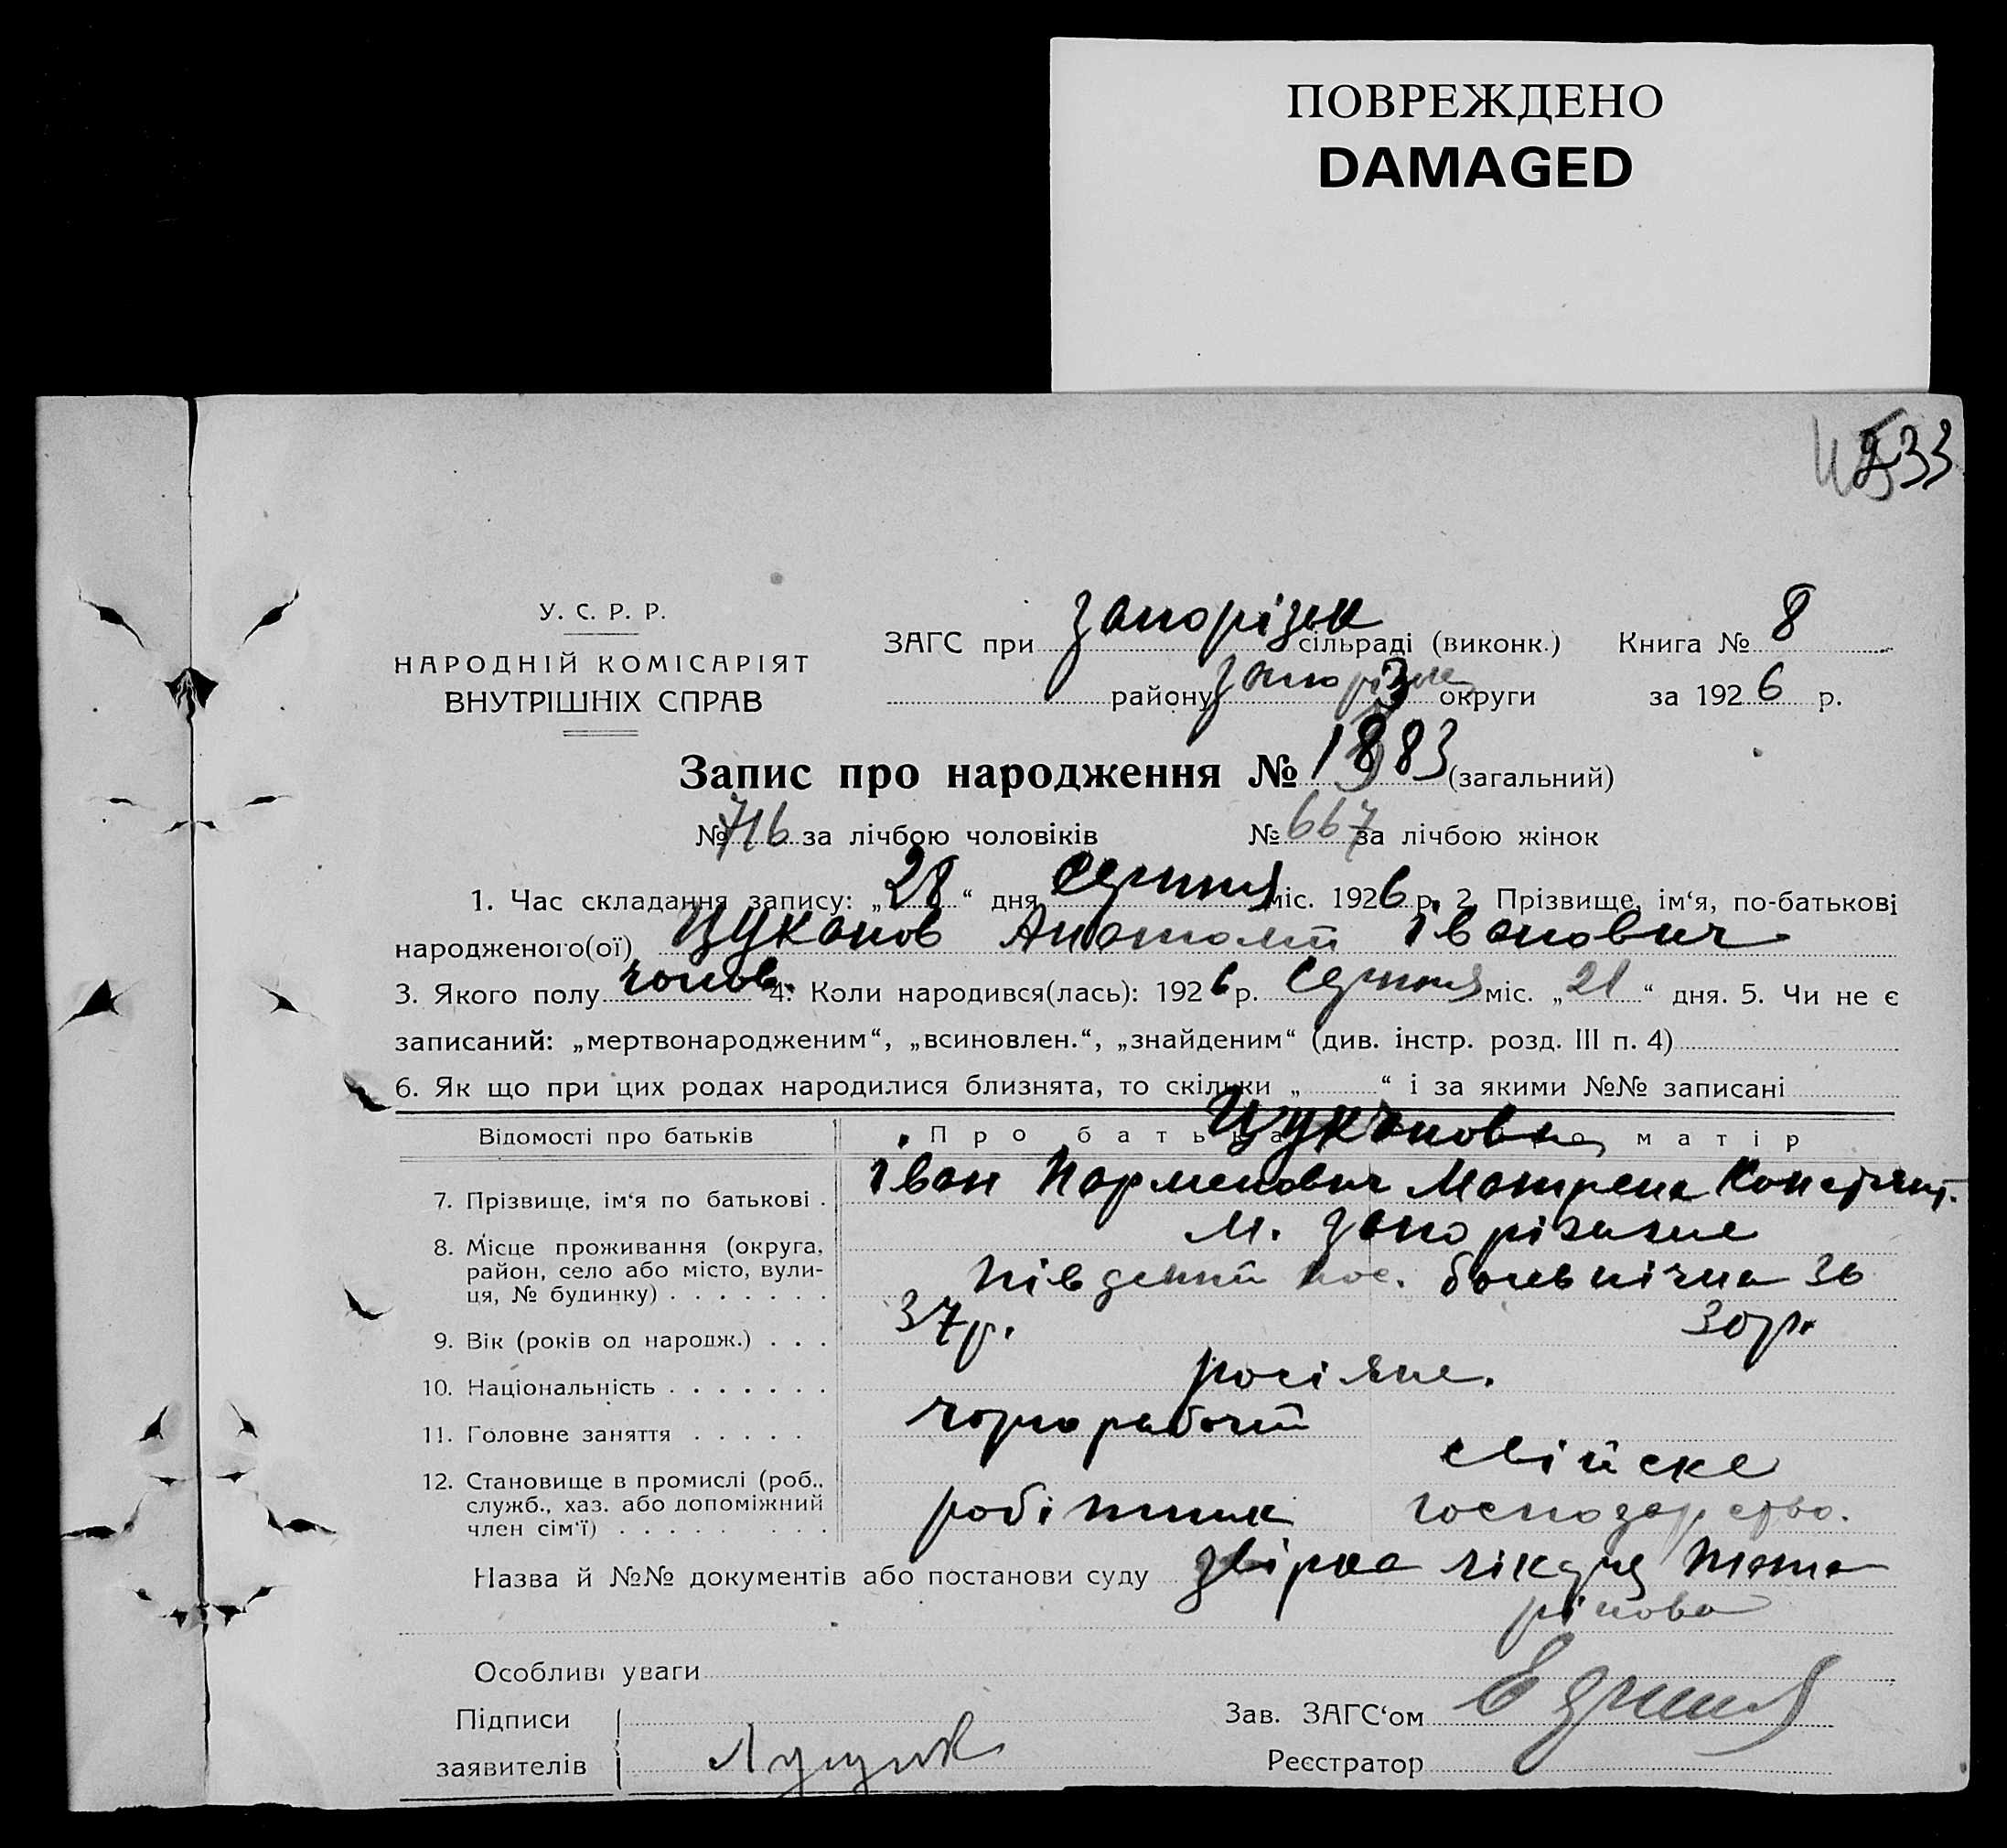 ПОВРЕЖДЕНО
DAMAGED
33
У. С. Р. Р.
НАРОДНІЙ КОМІСАРІЯТ
ВНУТРІШНІХ СПРАВ
ЗАГС при Запорізьк сільраді (виконк.) Книга № 8
району округи за 1926 р.
Запис про народження № 1383 (загальний)
№ 716 за лічбою чоловіків № 667 за лічбою жінок
1. Час складання запису: „28“ дня Серпня міс. 1926 р. 2. Прізвище, ім‘я, по-батькові
народженого(ої) Цуканов Анатолій Іванович
3. Якого полу чолов. 4. Коли народився(лась): 1926 р. Серпня міс. „21“ дня. 5. Чи не є
записаний: „мертвонародженим“, „всиновлен.“, „знайденим“ (див. інстр. розд. III п. 4)
6. Як що при цих родах народилися близнята, то скільки „ “ і за якими №№ записані
Відомості про батьків Про батька Про матір
Цуканови
7. Прізвище, ім‘я по батькові . Іван Парменович Матрена Констянт.
8. Місце проживання (округа, район, село або місто, вулиця, № будинку) м. Запоріжжє
Південний пос. 36
9. Вік (років од народж.) . . . 37 р. 30 р.
10. Національність росіяне.
11. Головне заняття чорнорабочий
12. Становище в промислі (роб., служб., хаз. або допоміжний член сім‘ї) робітник свійске господарство.
Назва й №№ документів або постанови суду
Особливі уваги
Підписи
заявителів
Зав. ЗАГС‘ом
Реєстратор